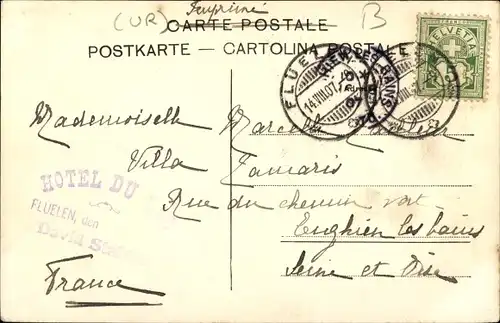 Imprimé
(UR) B
CARTE POSTALE
POSTKARTE - CARTOLINA POSTALE
HELVETIA
5
FLUELEN
14.VIII.07
Mademoiselle Marcelle
Villa Tamaris
Rue du chemin vert
Enghien les bains
Seine et Oise
France
HOTEL DU
FLUELEN, den
David